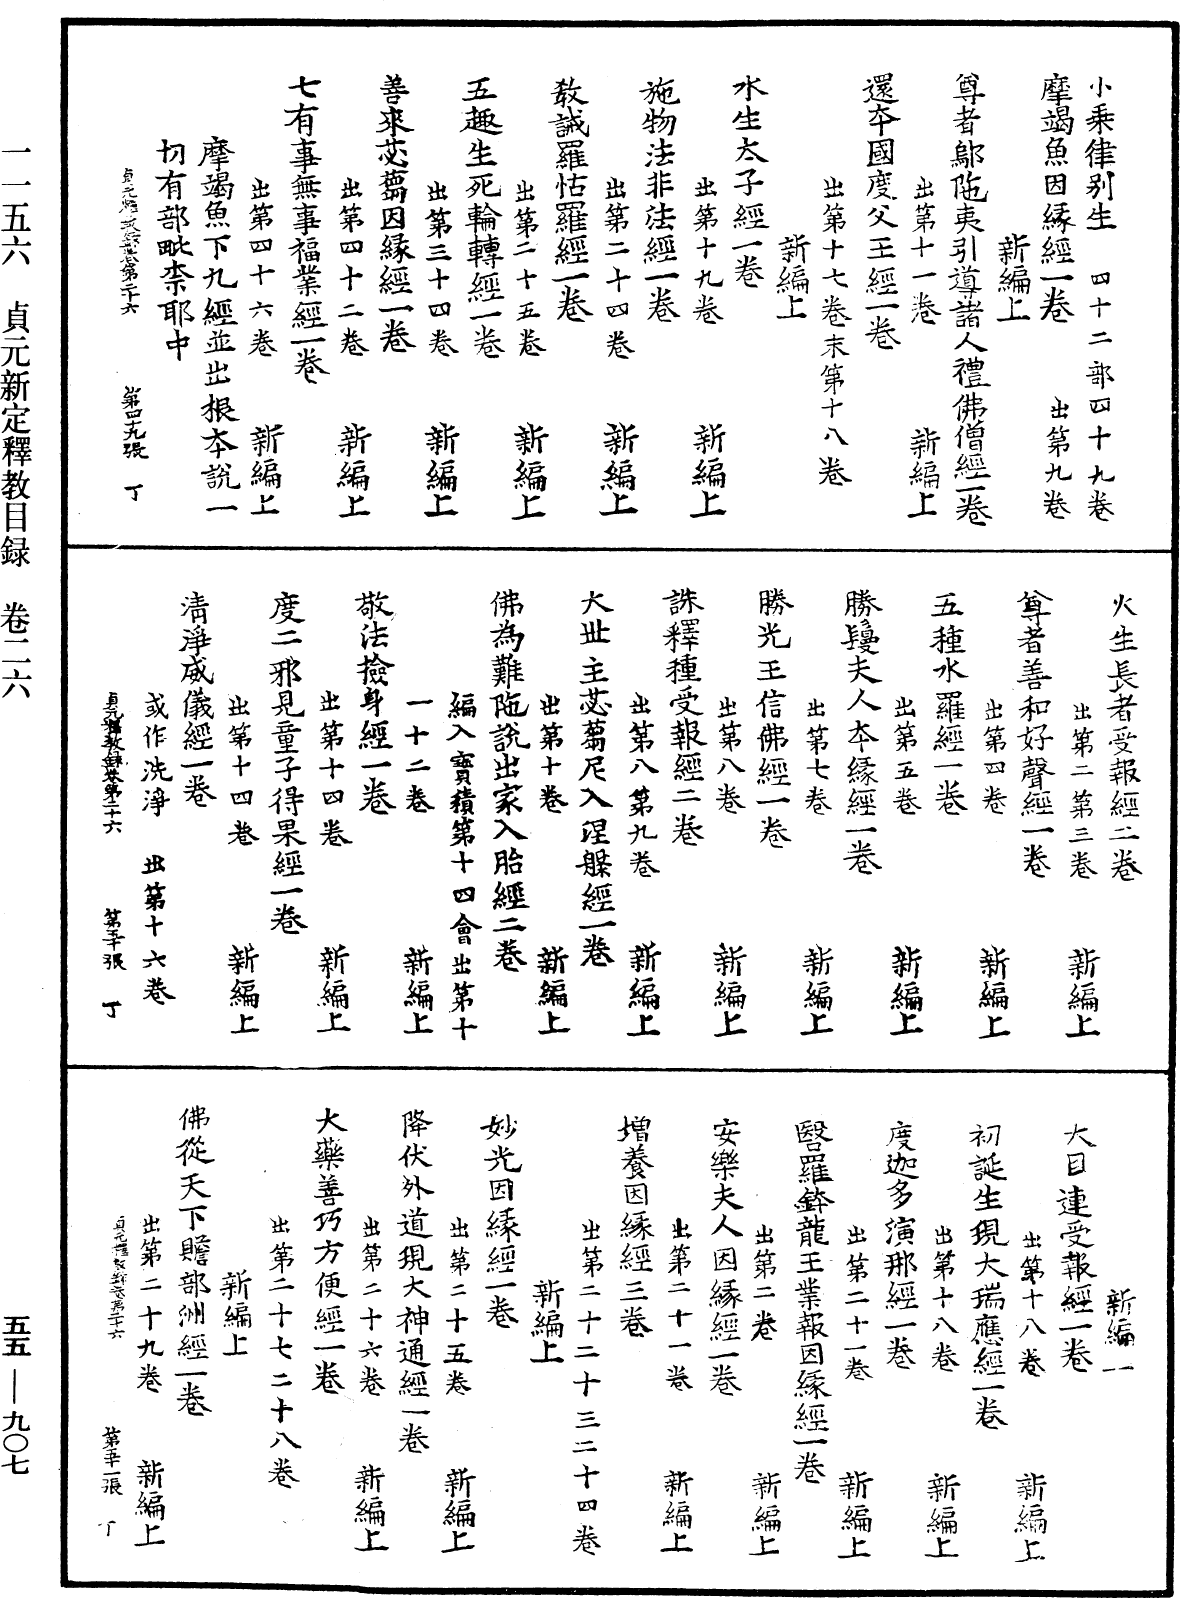 小乘律別生 四十二部四十九卷
摩竭魚因緣經一卷 出第九卷
新編上
尊者鄔陁夷引導諸人禮佛僧經一卷
出第十一卷 新編上
還本國度父王經一卷
出第十七卷末第十八卷
新編上
水生太子經一卷
出第十九卷 新編上
施物法非法經一卷
出第二十四卷 新編上
教誡羅怙羅經一卷
出第二十五卷 新編上
五趣生死輪轉經一卷
出第三十四卷 新編上
善來苾蒭因緣經一卷
出第四十二卷 新編上
七有事無事福業經一卷
出第四十六卷 新編上
摩竭魚下九經並出根本說一
切有部毗柰耶中
貞元釋教錄卷第二十六 第四十九張 丁
火生長者受報經二卷
出第二第三卷 新編上
尊者善和好聲經一卷
出第四卷 新編上
五種水羅經一卷
出第五卷 新編上
勝鬘夫人本緣經一卷
出第七卷 新編上
勝光王信佛經一卷
出第八卷 新編上
誅釋種受報經二卷
出第八第九卷 新編上
大世主苾蒭尼入涅槃經一卷
出第十卷 新編上
佛為難陁說出家入胎經二卷
編入寶積第十四會出第十
一十二卷 新編上
敬法捨身經一卷
出第十四卷 新編上
度二邪見童子得果經一卷
出第十四卷 新編上
清淨威儀經一卷
或作洗淨 出第十六卷
貞元釋教錄卷第二十六 第五十張 丁
新編上
大目連受報經一卷
出第十八卷 新編上
初誕生現大瑞應經一卷
出第十八卷 新編上
度迦多演那經一卷
出第二十一卷 新編上
醫羅鉢龍王業報因緣經一卷
出第二卷 新編上
安樂夫人因緣經一卷
出第二十一卷 新編上
增養因緣經三卷
出第二十二十三二十四卷
新編上
妙光因緣經一卷
出第二十五卷 新編上
降伏外道現大神通經一卷
出第二十六卷 新編上
大藥善巧方便經一卷
出第二十七二十八卷
新編上
佛從天下贍部洲經一卷
出第二十九卷 新編上
貞元釋教錄卷第二十六 第五十一張 丁
一一五六 貞元新定釋教目録 卷二六
五五—九〇七